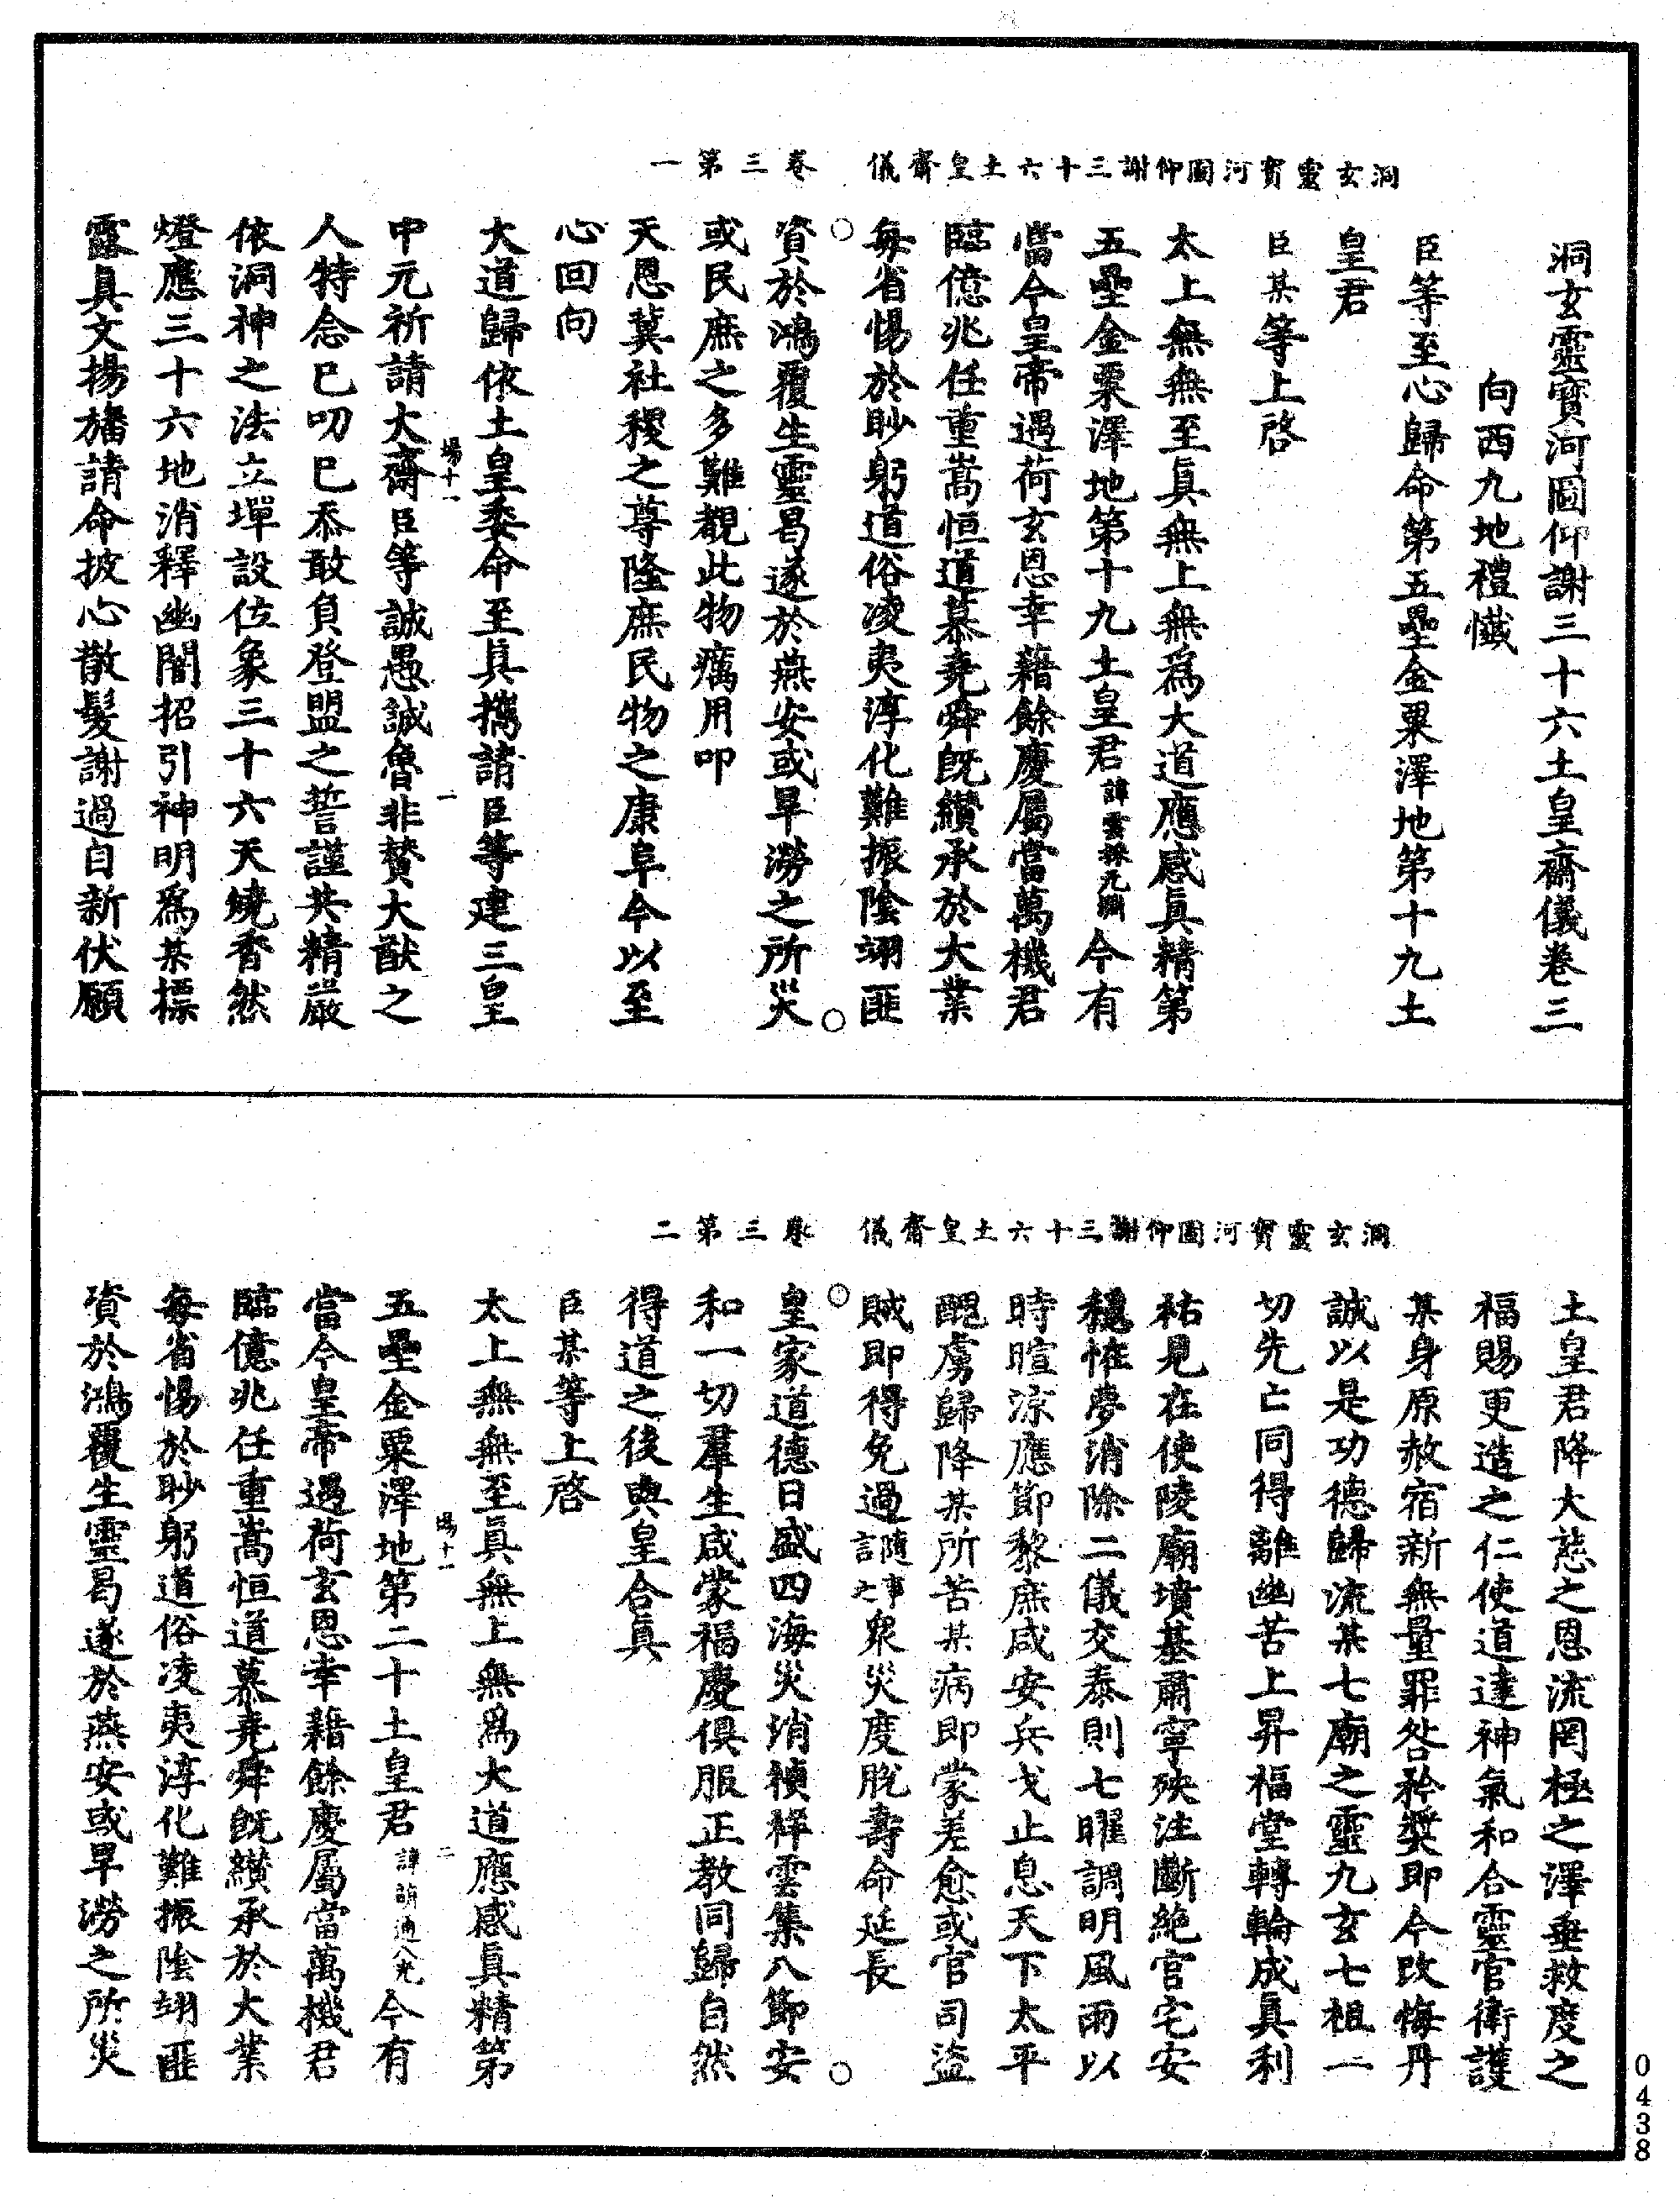 洞玄靈寶河圖仰謝三十六土皇齋儀　卷三第一
洞玄靈寶河圖仰謝三十六土皇齋儀卷三
向西九地禮懺
臣等至心歸命第五壘金粟澤地第十九土
皇君
臣某等上啓
太上無無至真無上無爲大道應感真精第
五壘金粟澤地第十九土皇君諱雲探无淵今有
當今皇帝遇荷玄恩幸藉餘慶屬當萬機君
臨億兆任重嵩恒道慕堯舜旣纘承於大業
每省惕於眇躬道俗凌夷淳化難振陰翊匪
資於鴻覆生靈曷遂於燕安或旱澇之所災
或民庶之多難覩此物癘用叩
天恩冀社稷之尊隆庶民物之康阜今以至
心回向
大道歸依土皇委命至真攜請臣等建三皇
中元祈請大齋臣等誠愚誠魯非贊大猷之
人特念已叨已忝敢負登盟之誓謹共精嚴
依洞神之法立墠設位象三十六天燒香然
燈應三十六地消釋幽闇招引神明爲某標
露真文揚旛請命披心散髮謝過自新伏願
場十一
一
洞玄靈寶河圖仰謝三十六土皇齋儀　卷三第二
土皇君降大慈之恩流罔極之澤垂救度之
福賜更造之仁使道達神氣和合靈官衛護
某身原赦宿新無量罪咎矜獎即今改悔丹
誠以是功德歸流某七廟之靈九玄七祖一
切先亡同得離幽苦上昇福堂轉輪成真利
祐見在使陵廟墳基肅寧殃注斷絶官宅安
穩恠夢消除二儀交泰則七曜調明風雨以
時暄涼應節黎庶咸安兵戈止息天下太平
醜虜歸降某所苦某病即蒙差愈或官司盜
賊即得免過隨事言之衆災度脫壽命延長
皇家道德日盛四海災消禎祥雲集八節安
和一切羣生咸蒙福慶俱服正教同歸自然
得道之後與皇合真
臣某等上啓
太上無無至真無上無爲大道應感真精第
五壘金粟澤地第二十土皇君諱䕃通八光今有
當今皇帝遇荷玄恩幸藉餘慶屬當萬機君
臨億兆任重嵩恒道慕堯舜旣纘承於大業
每省惕於眇躬道俗凌夷淳化難振陰翊匪
資於鴻覆生靈曷遂於燕安或旱澇之所災
場十一
二
0438